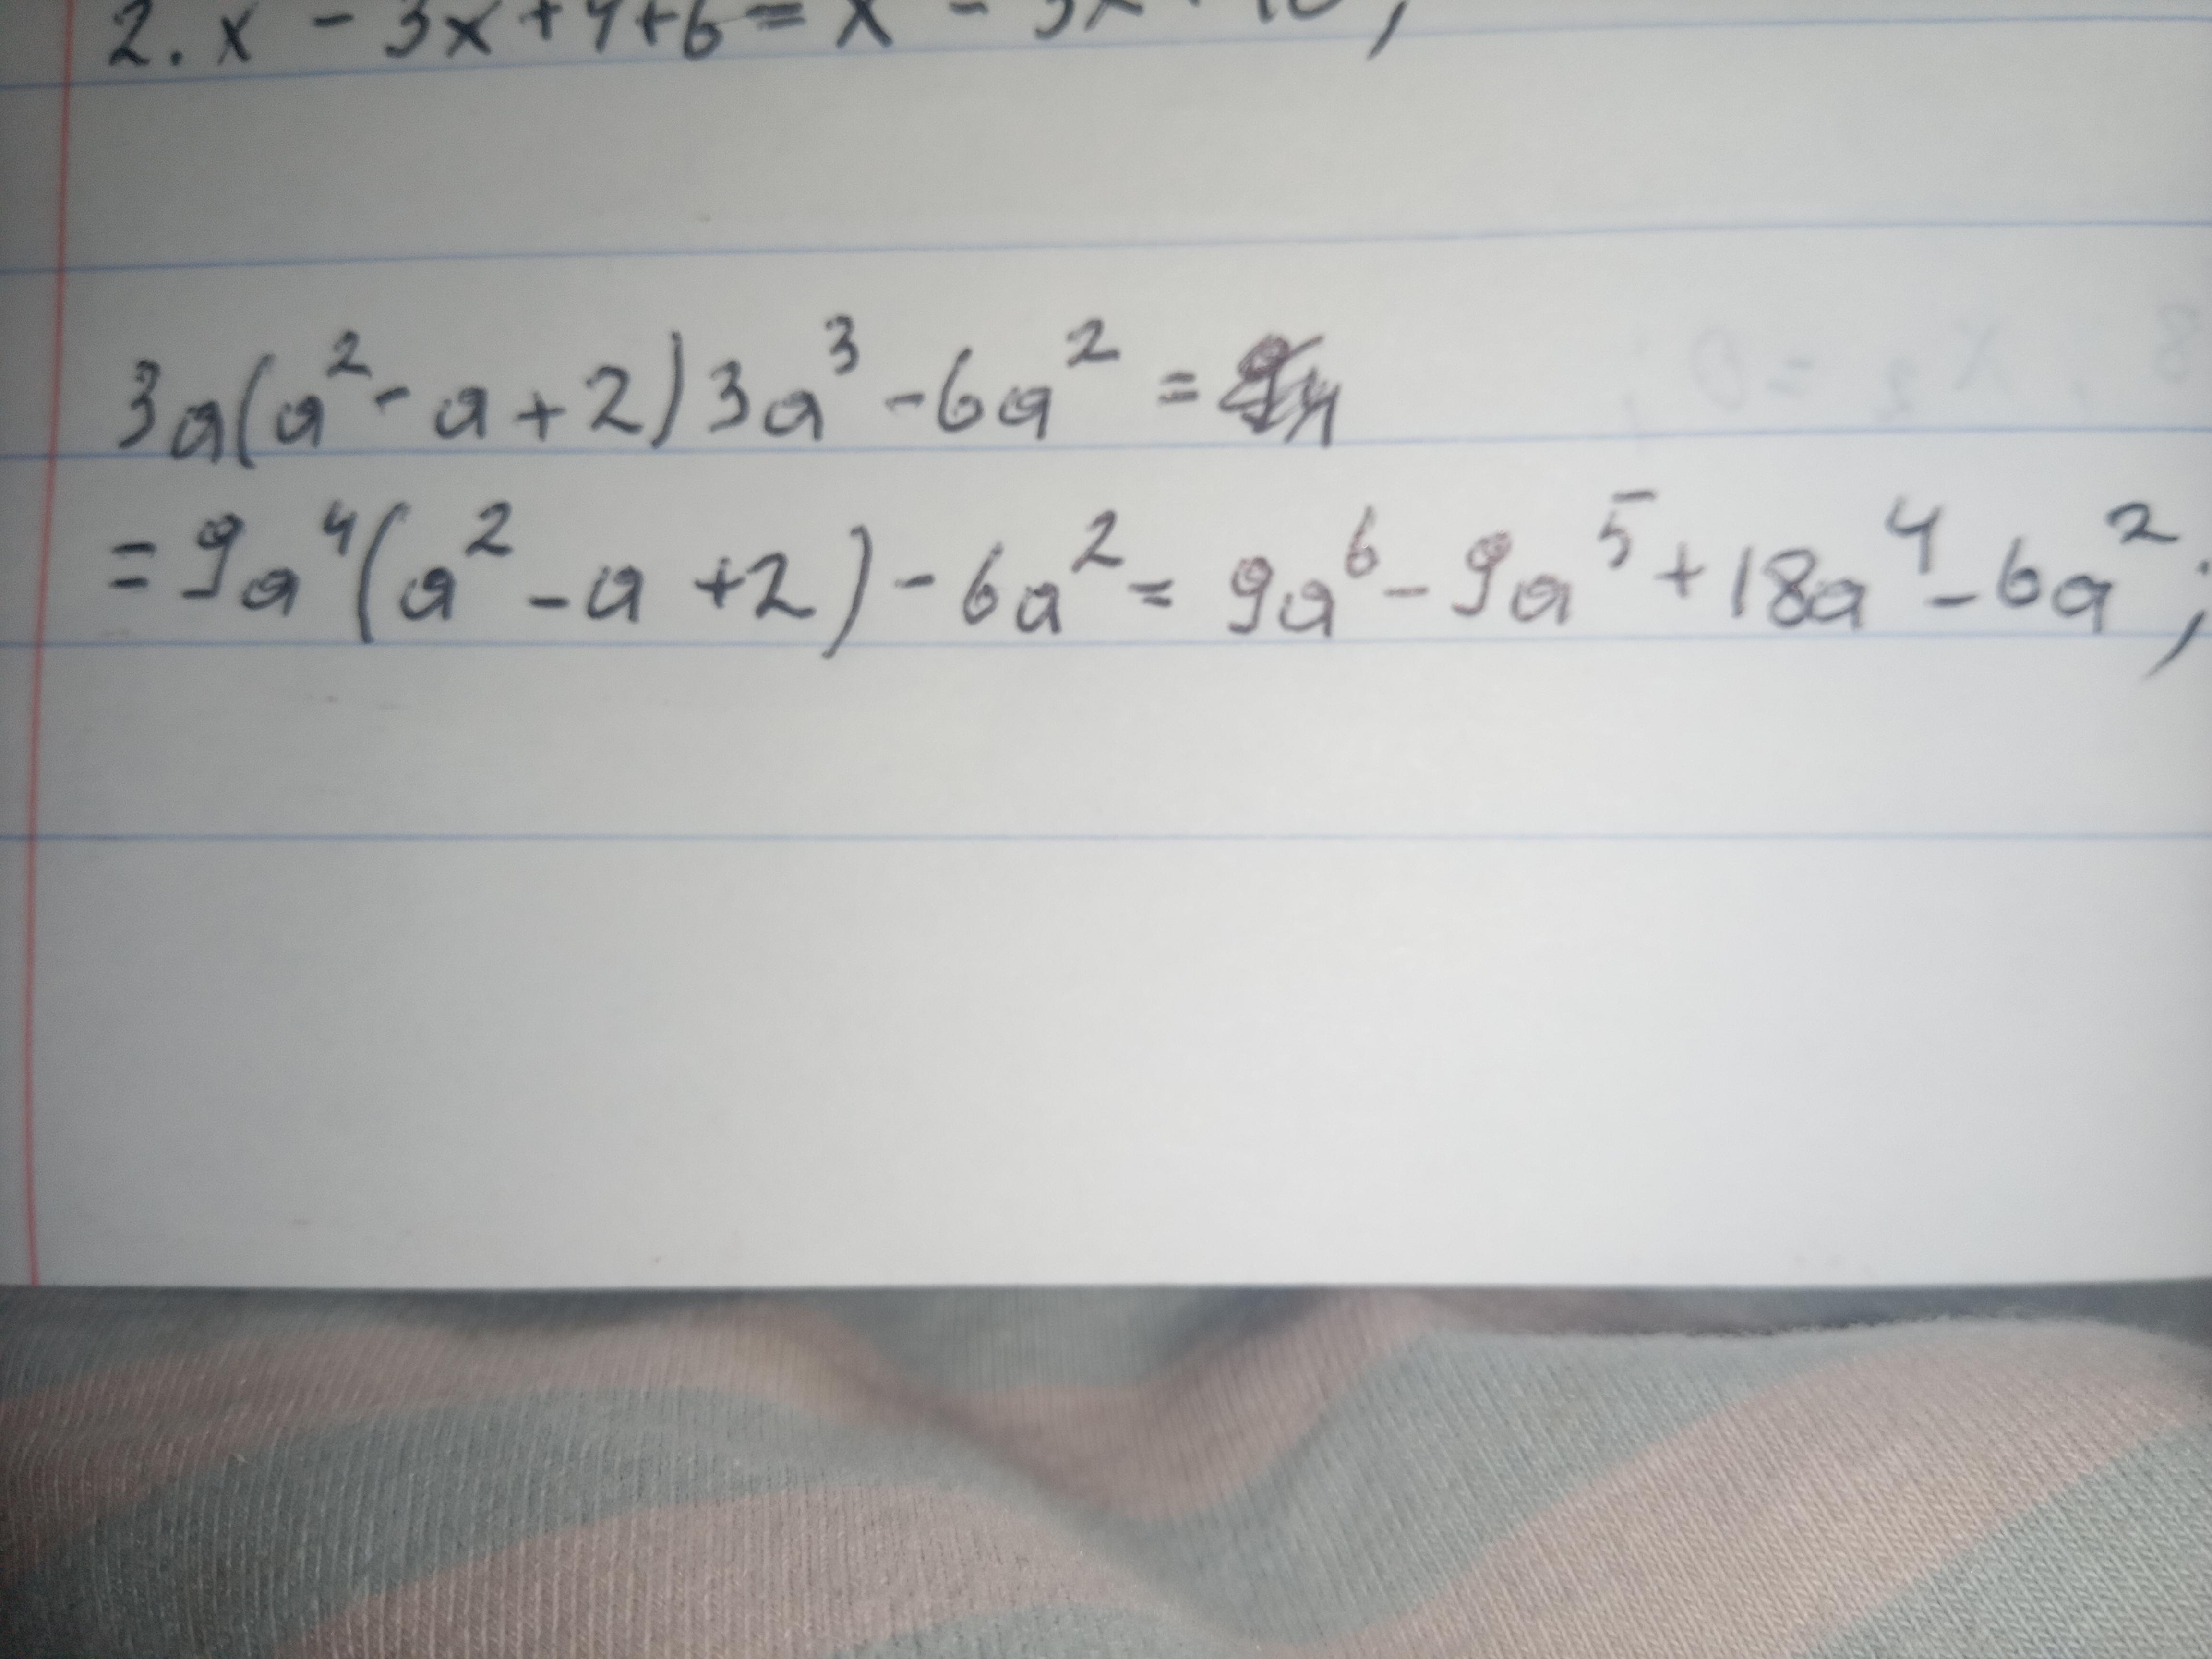 2. x - 3x + 4 + 6 = x -
3a(a² - a + 2) 3a³ - 6a² =
= 9a⁴(a² - a + 2) - 6a² = 9a⁶ - 9a⁵ + 18a⁴ - 6a²;